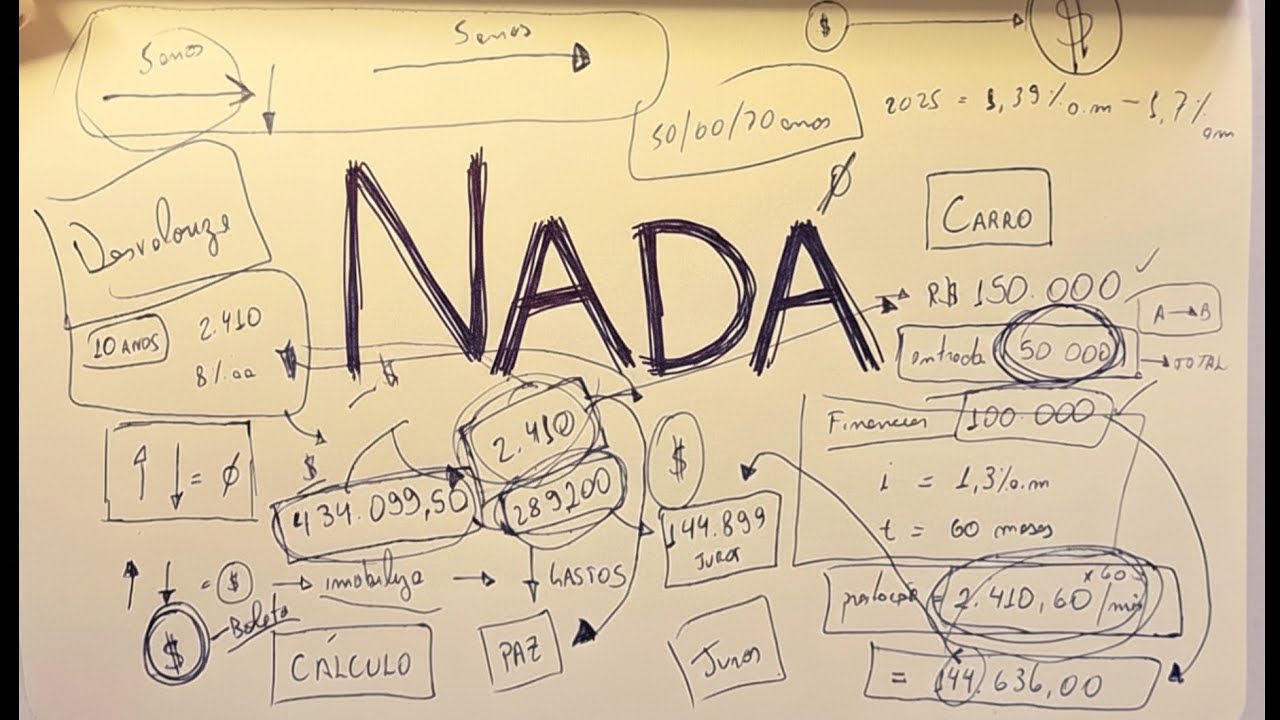 5 anos
5 anos
$
$
50/60/70 anos
2025 = 1,39% a.m - 1,7% a.m
Desvaloriza
NADA
Ø
CARRO
R$ 150.000
A → B
entrada 50 000
→ TOTAL
10 ANOS
2.410
8% aa
$
2.410
Financiar 100.000
i = 1,3% a.m
t = 60 meses
↑ ↓ = Ø
$
434.099,50
289200
$
144.899
JUROS
prestação = 2.410,60/mês
x 60
= 144.636,00
↑ ↓ = $ → imobiliza → GASTOS
$ Boleto
CÁLCULO
PAZ
Juros